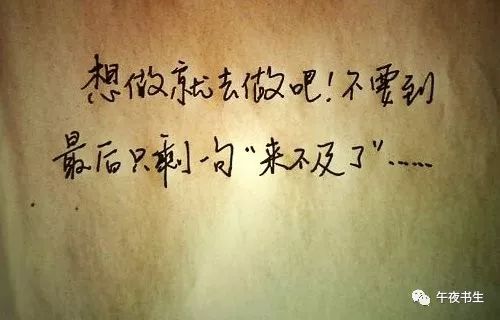 想做就去做吧！不要到
最后只剩一句“来不及了”……
午夜书生